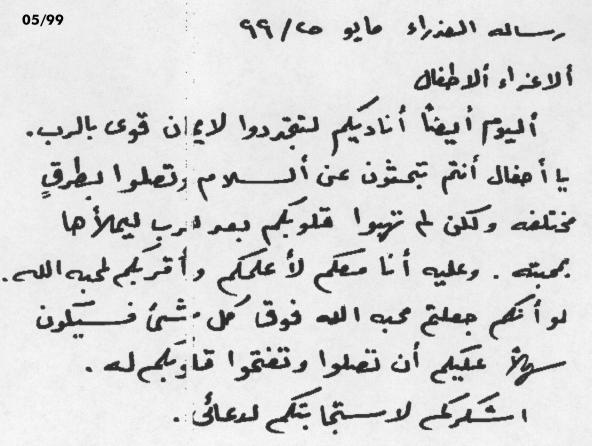 05/99
رساله العذراء مايو ٢٥/٩٩
الاعزاء الاطفال
اليوم أيضاً أناديكم لتتجددوا لايمان قوى بالرب.
يا أطفال أنتم تبحثون عن السلام وتصلوا بطرقٍ
مختلفه ولكن لم تهبوا قلوبكم بعد للرب ليملأها
بمحبته. وعليه أنا معكم لأعلمكم وأقربكم لمحبه الله.
لو أنكم جعلتم محبه الله فوق كل شئ فسيكون
سهلاً عليكم أن تصلوا وتفتحوا قلوبكم له.
اشكركم لاستجابتكم لدعائى.